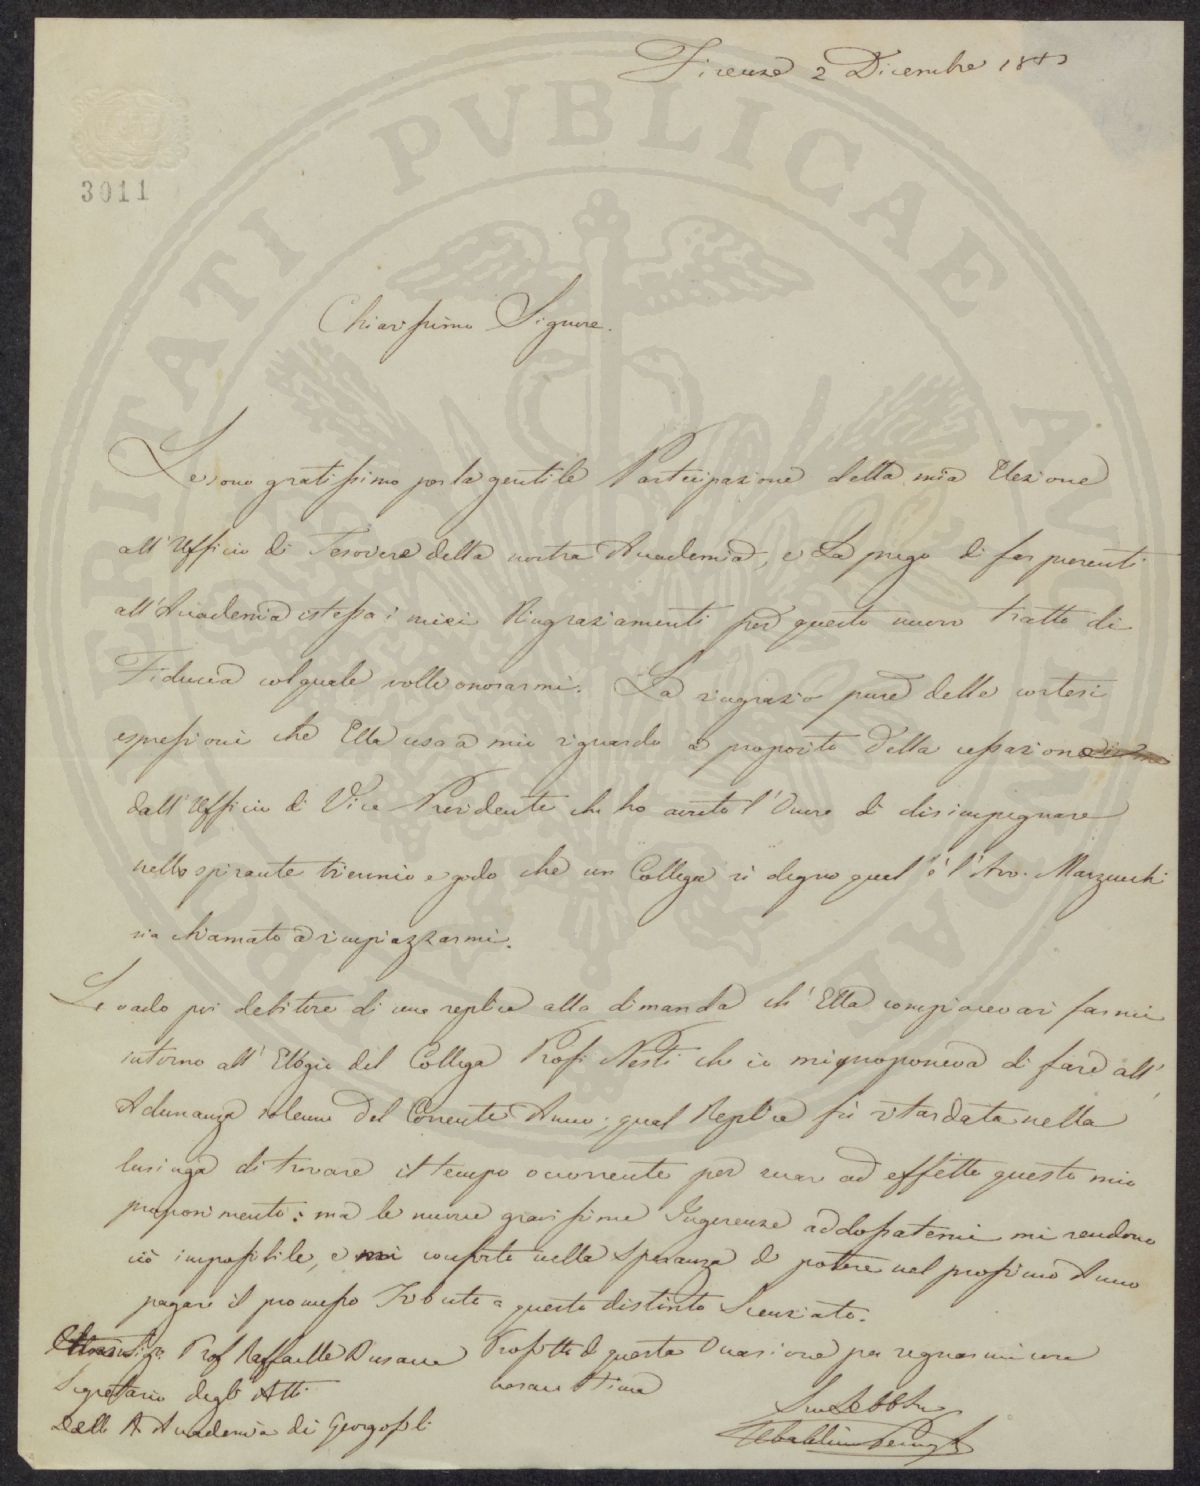 Firenze 2 Dicembre
PROSPERITATI PVBLICAE AVGENDAE
3011
Chiarissimo Signore.
Le sono gratissimo per la gentile Partecipazione della mia Elezione
all'Uffizio di Tesoriere della nostra Accademia, e La prego di far presenti
all'Accademia istessa i miei Ringraziamenti per questo nuovo tratto di
Fiducia col quale volle onorarmi. La ringrazio pure delle cortesi
espressioni che Ella usa a mio riguardo a proposito della cessazione
dall'Uffizio di Vice Presidente che ho avuto l'Onore di disimpegnare
nello spirante triennio e godo che un Collega sì degno qual'è l'Avv. Marzucchi
sia chiamato a rimpiazzarmi.
Le vado poi debitore di una replica alla dimanda ch'Ella compiacevasi farmi
intorno all'Elogio del Collega Prof. Nesti che io mi proponeva di fare all'
Adunanza solenne del Corrente Anno; qual Replica fu ritardata nella
lusinga di trovare il tempo occorrente per recare ad effetto questo mio
proponimento: ma le nuove gravissime Ingerenze addossatemi mi rendono
ciò impossibile, e mi conforto nella Speranza di potere nel prossimo Anno
pagare il promesso Tributo a questo distinto Scienziato.
Profitto di questa Occasione per segnarmi con
vera Stima
Suo
Sig. Prof Raffaelle Busacca
Segretario degli Atti
Dell' Accademia di Georgofili